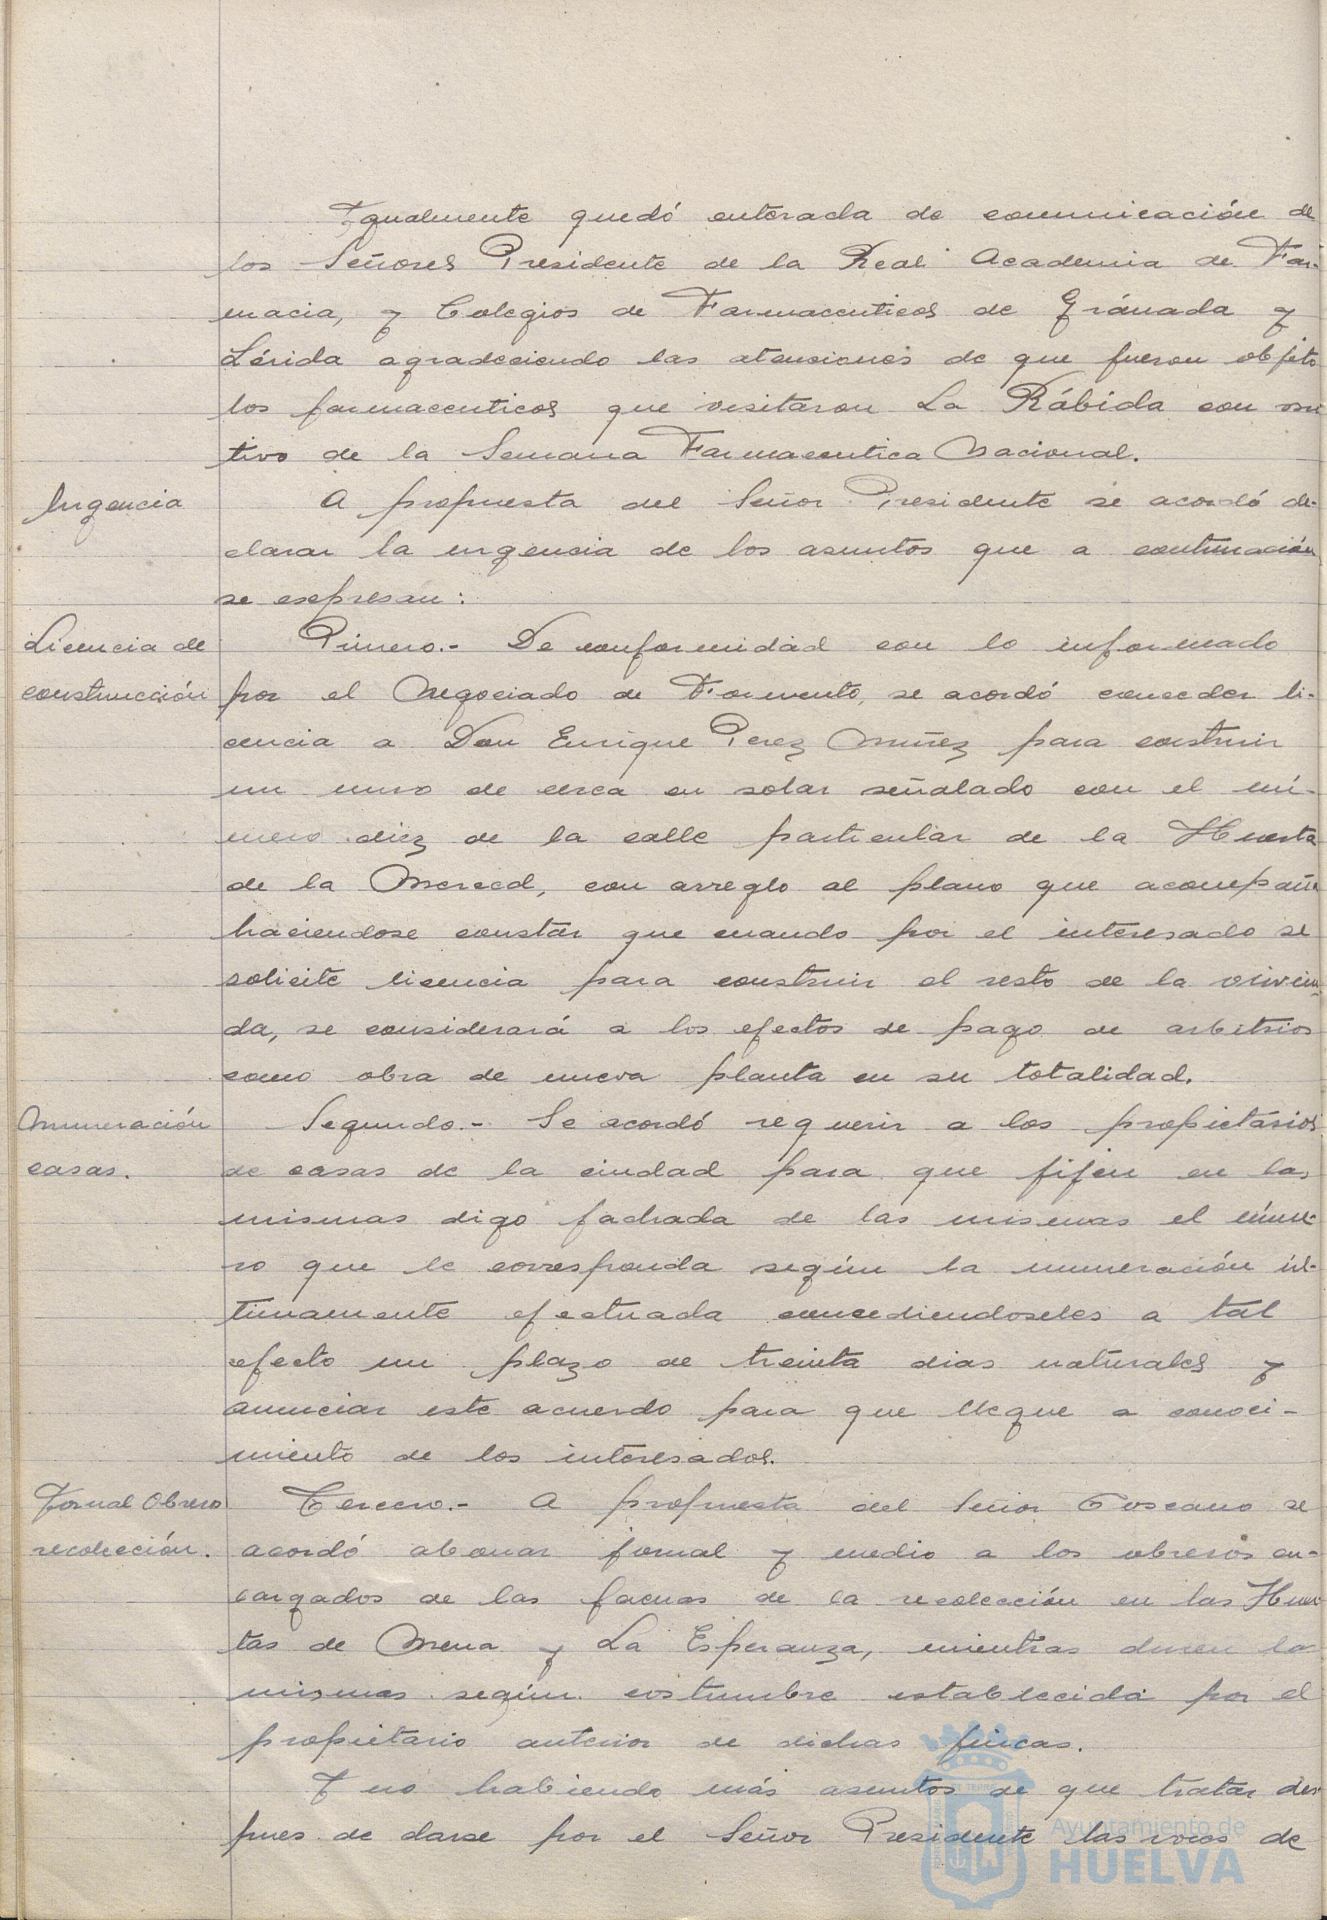 Igualmente quedó enterada de comunicación de
los Señores Presidente de la Real Academia de Far-
macia, y Colegios de Farmaceuticos de Gránada y
Lérida agradeciendo las atenciones de que fueron objeto
los farmaceuticos que visitaron La Rábida con mo
tivo de la Semana Farmaceutica Nacional.
Urgencia
A propuesta del Señor Presidente se acordó de-
clarar la urgencia de los asuntos que a continuación
se expresan:
Licencia de
construcción
Primero.- De conformidad con lo informado
por el Negociado de Fomento, se acordó conceder li-
cencia a Don Enrique Perez Muñez para construir
un muro de cerca en solar señalado con el nú-
mero diez de la calle particular de la Huerta
de la Merced, con arreglo al plano que acompaña
haciendose constar que cuando por el interesado se
solicite licencia para construir el resto de la vivien
da, se considerará a los efectos de pago de arbitrios
como obra de nueva planta en su totalidad.
Numeración
casas.
Segundo.- Se acordó requerir a los propietarios
de casas de la ciudad para que fijen en las
mismas digo fachada de las mismas el núme-
ro que le corresponda según la numeración úl-
timamente efectuada concediendoseles a tal
efecto un plazo de treinta dias naturales y
anunciar este acuerdo para que llegue a conoci-
miento de los interesados.
Jornal Obrero
recolección.
Tercero.- A propuesta del Señor Toscano se
acordó abonar jornal y medio a los obreros en-
cargados de las faenas de la recolección en las Huer
tas de Mena y La Esperanza, mientras duren las
mismas según costumbre establecida por el
propietario anterior de dichas fincas.
Y no habiendo más asuntos de que tratar des-
pues de darse por el Señor Presidente las voces de
Ayuntamiento de
HUELVA